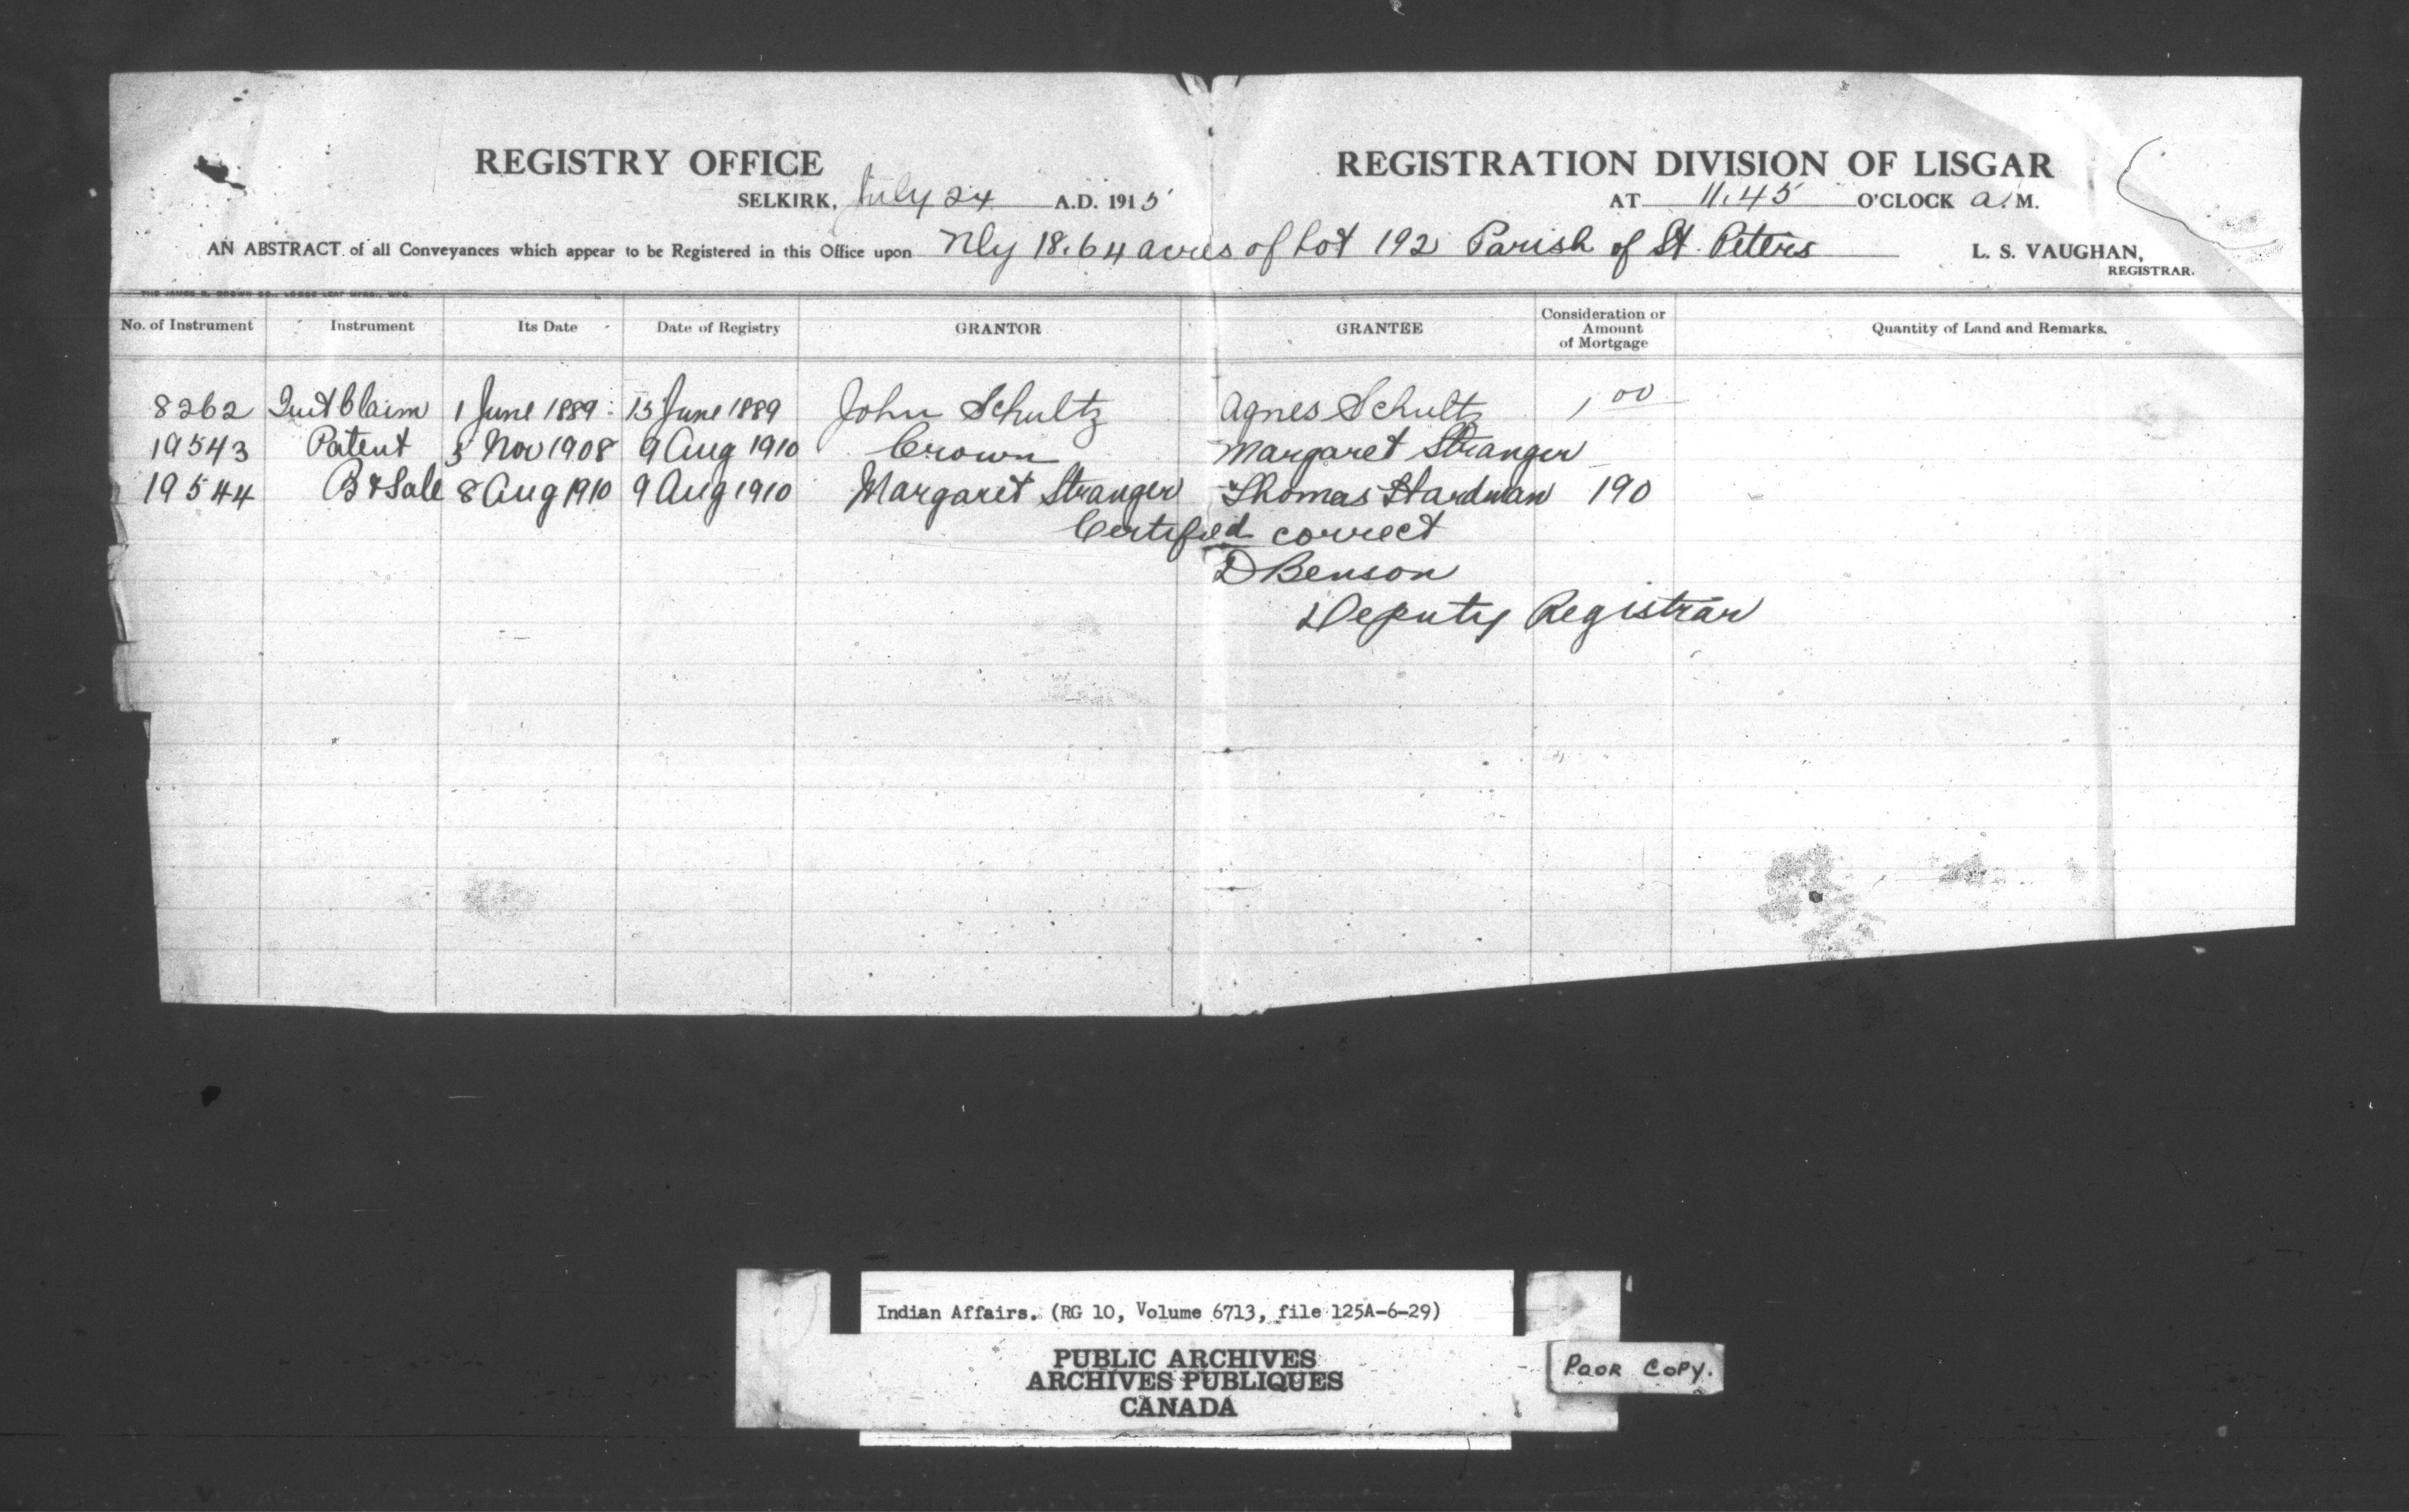 REGISTRY OFFICE REGISTRATION DIVISION OF LISGAR
SELKIRK, July 24 A.D. 1915 AT 11.45 O'CLOCK a. M.
AN ABSTRACT of all Conveyances which appear to be Registered in this Office upon Nly 18.64 acres of Lot 192 Parish of St. Peters L. S. VAUGHAN,
REGISTRAR.
No. of Instrument Instrument Its Date Date of Registry GRANTOR GRANTEE Consideration or Amount of Mortgage Quantity of Land and Remarks.
8262 Quit Claim 1 June 1889 15 June 1889 John Schultz Agnes Schultz 1 00
19543 Patent 5 Nov 1908 9 Aug 1910 Crown Margaret Stranger
19544 B & Sale 8 Aug 1910 9 Aug 1910 Margaret Stranger Thomas Hardman 190
Certified correct
D Benson
Deputy Registrar
Indian Affairs. (RG 10, Volume 6713, file 125A-6-29)
PUBLIC ARCHIVES
ARCHIVES PUBLIQUES
CANADA
POOR COPY.